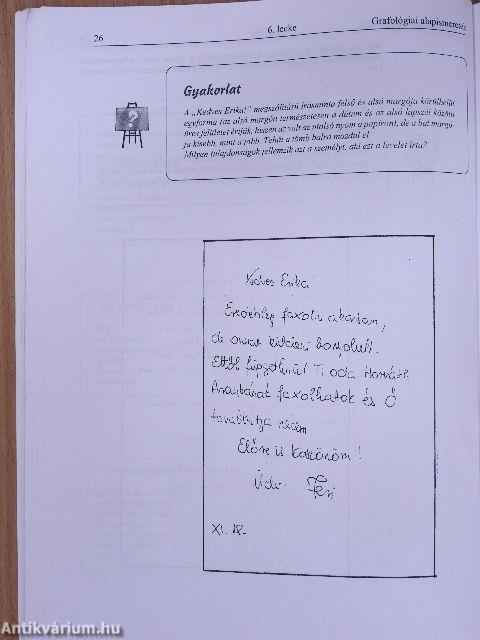 26
6. lecke
Grafológiai alapismeretek
Gyakorlat
A „Kedves Erika!” megszólítású írásminta felső és alsó margója körülbelül
egyforma (az alsó margón természetesen a dátum és az alsó lapszél közötti
üres felületet értjük, hiszen az volt az utolsó nyom a papíron), de a bal margó-
ja kisebb, mint a jobb. Tehát a tömb balra mozdul el.
Milyen tulajdonságok jellemzik azt a személyt, aki ezt a levelet írta?
?
Kedves Erika!
faxolni akartam,
de
Ettől függetlenül Ti oda Horváth
faxolhatok és Ő
továbbítja nekem
Előre is köszönöm!
Üdv. Feri
XI. 18.
Antikvárium.hu